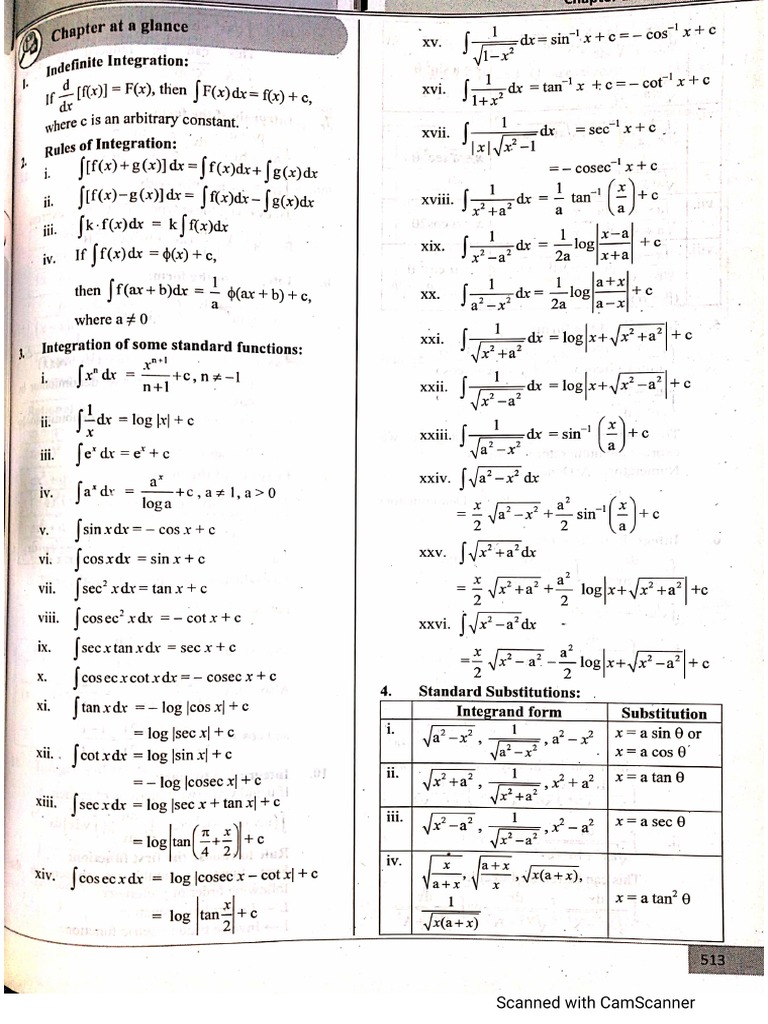 Chapter at a glance
1. Indefinite Integration:
If d/dx [f(x)] = F(x), then ∫F(x)dx = f(x) + c,
where c is an arbitrary constant.
2. Rules of Integration:
i. ∫[f(x)+g(x)]dx = ∫f(x)dx + ∫g(x)dx
ii. ∫[f(x)−g(x)]dx = ∫f(x)dx − ∫g(x)dx
iii. ∫k·f(x)dx = k∫f(x)dx
iv. If ∫f(x)dx = ϕ(x) + c,
then ∫f(ax + b)dx = 1/a ϕ(ax + b) + c,
where a ≠ 0
3. Integration of some standard functions:
i. ∫xⁿ dx = xⁿ⁺¹/(n+1) + c, n ≠ −1
ii. ∫1/x dx = log |x| + c
iii. ∫eˣ dx = eˣ + c
iv. ∫aˣ dx = aˣ/log a + c, a ≠ 1, a > 0
v. ∫sin x dx = − cos x + c
vi. ∫cos x dx = sin x + c
vii. ∫sec² x dx = tan x + c
viii. ∫cosec² x dx = − cot x + c
ix. ∫sec x tan x dx = sec x + c
x. ∫cosec x cot x dx = − cosec x + c
xi. ∫tan x dx = − log |cos x| + c
= log |sec x| + c
xii. ∫cot x dx = log |sin x| + c
= − log |cosec x| + c
xiii. ∫sec x dx = log |sec x + tan x| + c
= log |tan(π/4 + x/2)| + c
xiv. ∫cosec x dx = log |cosec x − cot x| + c
= log |tan x/2| + c
xv. ∫1/√(1−x²) dx = sin⁻¹ x + c = − cos⁻¹ x + c
xvi. ∫1/(1+x²) dx = tan⁻¹ x + c = − cot⁻¹ x + c
xvii. ∫1/(|x|√(x²−1)) dx = sec⁻¹ x + c
= − cosec⁻¹ x + c
xviii. ∫1/(x²+a²) dx = 1/a tan⁻¹ (x/a) + c
xix. ∫1/(x²−a²) dx = 1/2a log |(x−a)/(x+a)| + c
xx. ∫1/(a²−x²) dx = 1/2a log |(a+x)/(a−x)| + c
xxi. ∫1/√(x²+a²) dx = log |x+√(x²+a²)| + c
xxii. ∫1/√(x²−a²) dx = log |x+√(x²−a²)| + c
xxiii. ∫1/√(a²−x²) dx = sin⁻¹ (x/a) + c
xxiv. ∫√(a²−x²) dx
= x/2 √(a²−x²) + a²/2 sin⁻¹ (x/a) + c
xxv. ∫√(x²+a²) dx
= x/2 √(x²+a²) + a²/2 log |x+√(x²+a²)| + c
xxvi. ∫√(x²−a²) dx
= x/2 √(x²−a²) − a²/2 log |x+√(x²−a²)| + c
4. Standard Substitutions:
Integrand form Substitution
i. √(a²−x²), 1/√(a²−x²), a² − x² x = a sin θ or
x = a cos θ
ii. √(x²+a²), 1/√(x²+a²), x² + a² x = a tan θ
iii. √(x²−a²), 1/√(x²−a²), x² − a² x = a sec θ
iv. √(x/(a+x)), √((a+x)/x), √(x(a+x)),
1/√(x(a+x)) x = a tan² θ
513
Scanned with CamScanner